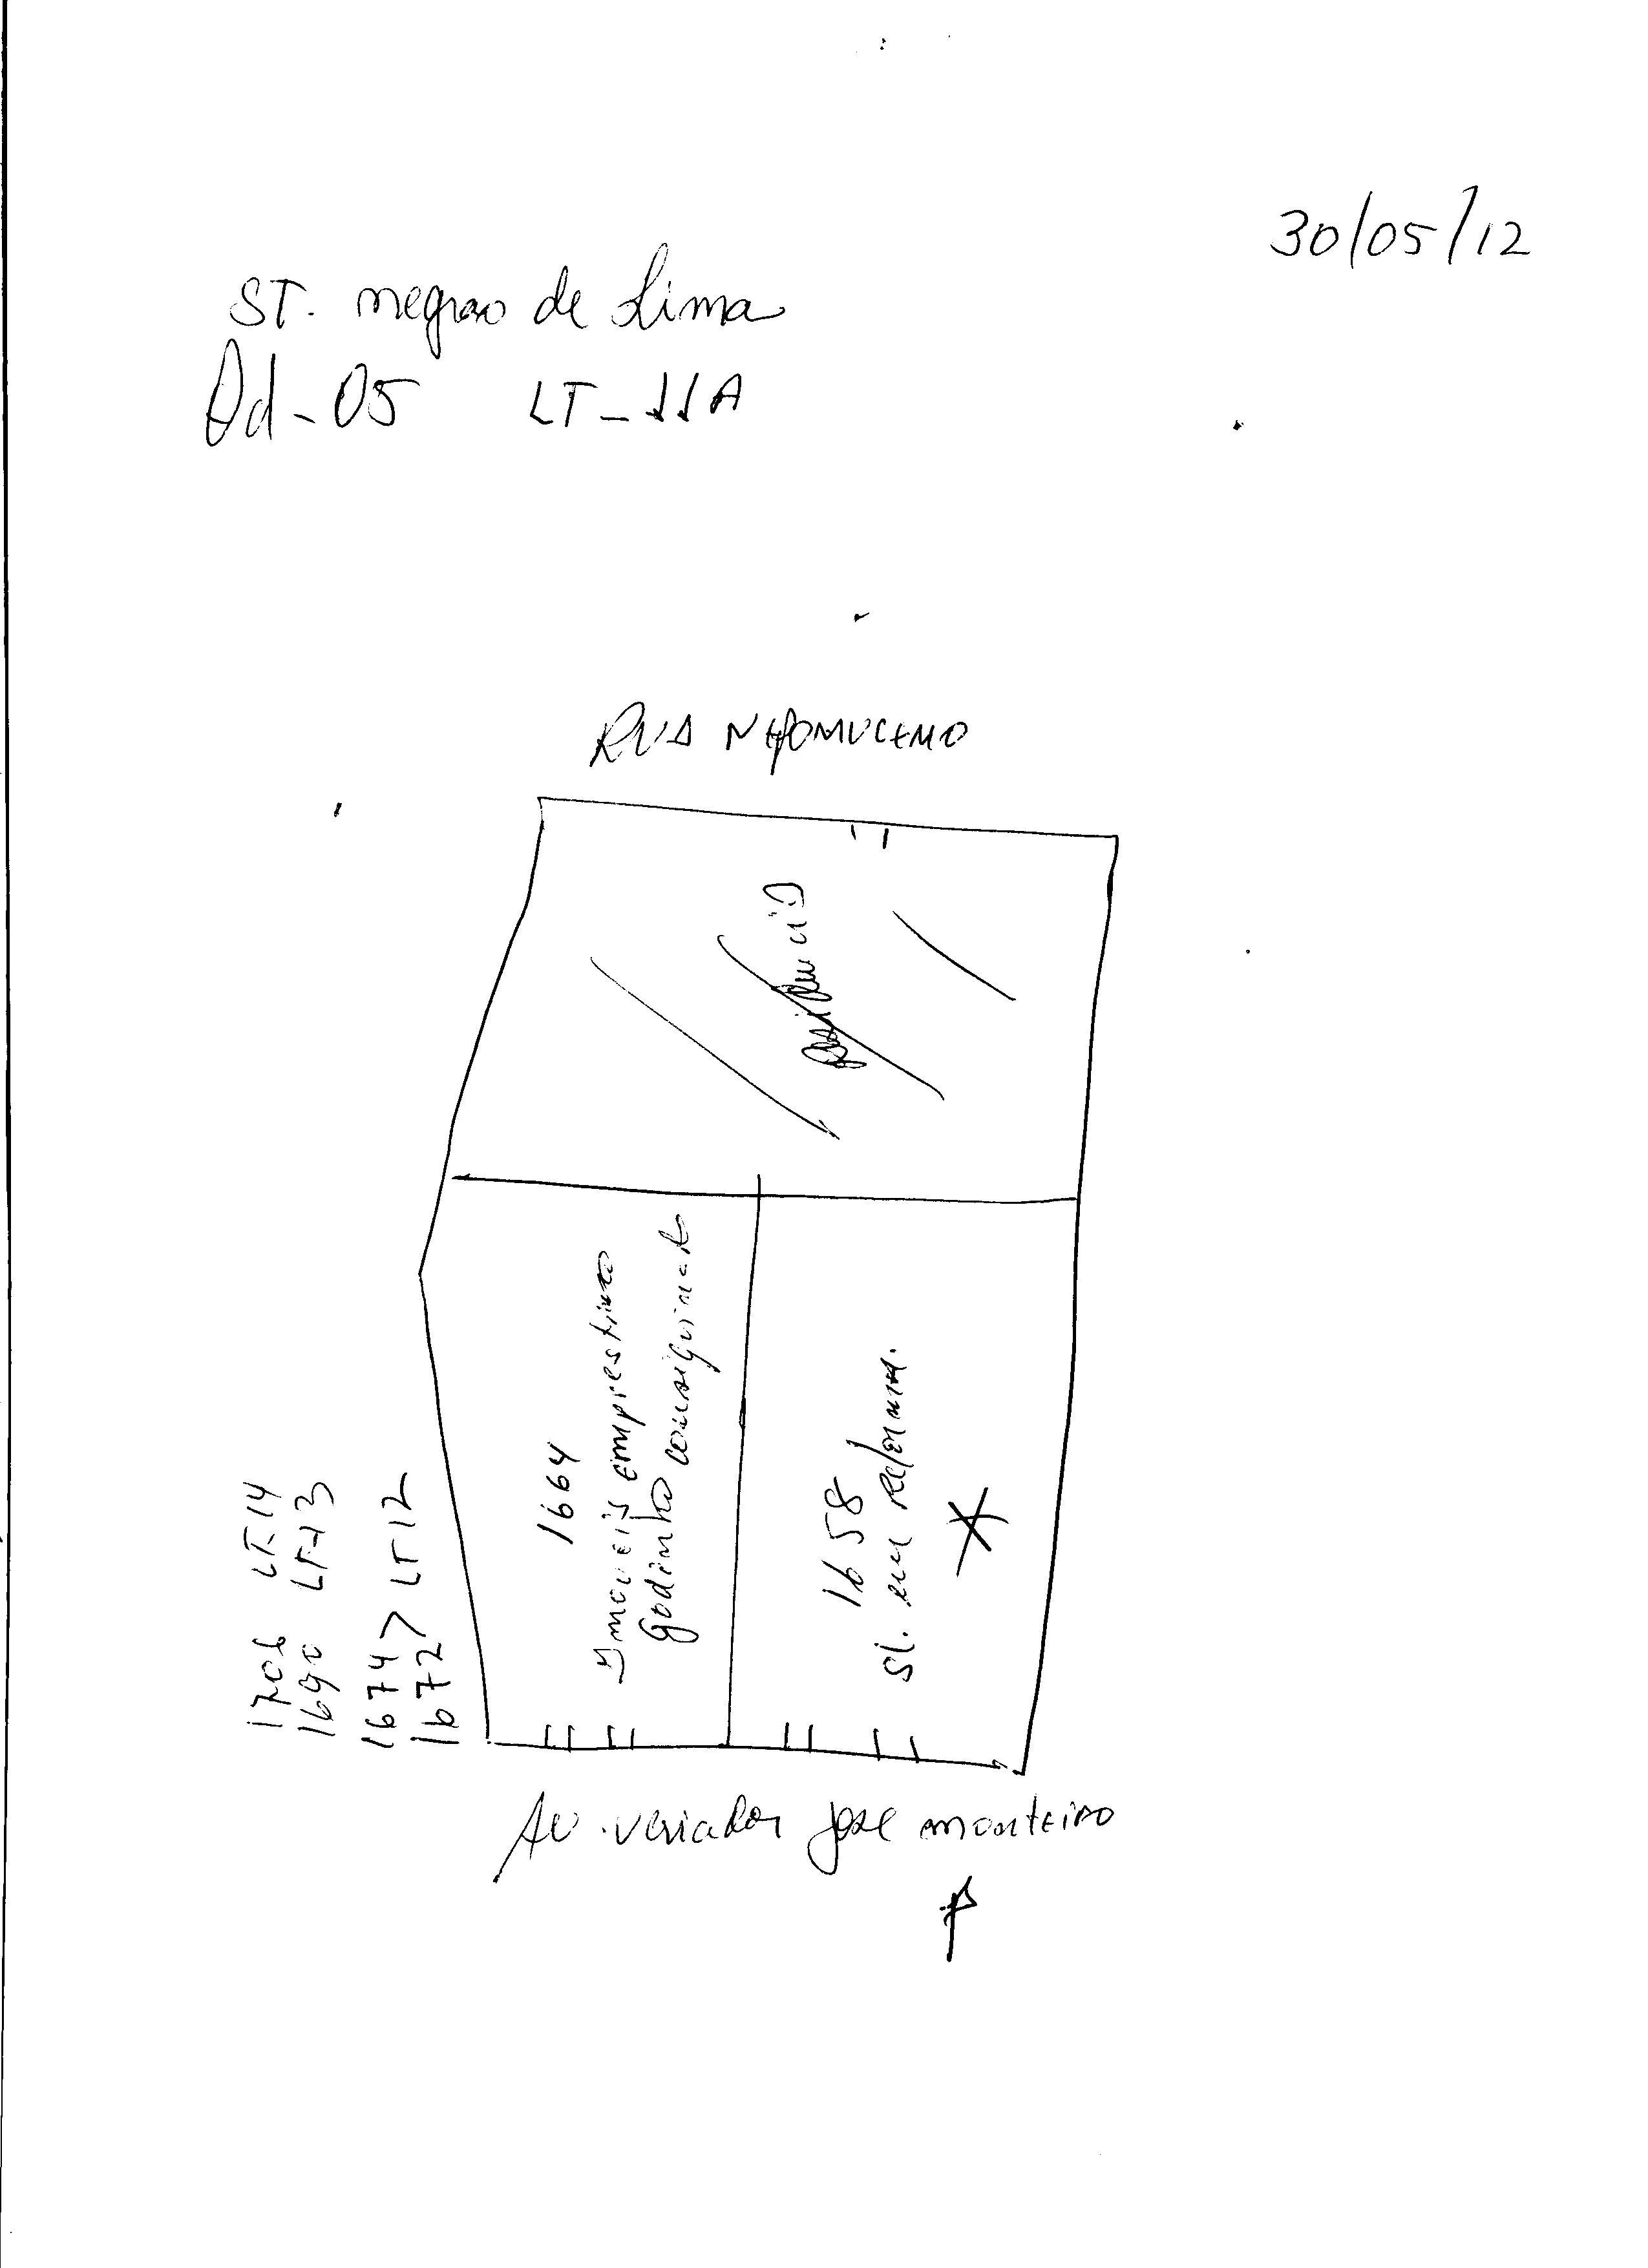 30/05/12
ST. negrao de Lima
Qd - 05 LT - 11A
RUA NEPOMUCENO
Residencia
1664
Imoveis emprestimo
Godinho consiguinado
1658
sl. em reforma.
1706 LT-14
1690 LT-13
1674 > LT 12
1672
Av. veriador jose monteiro